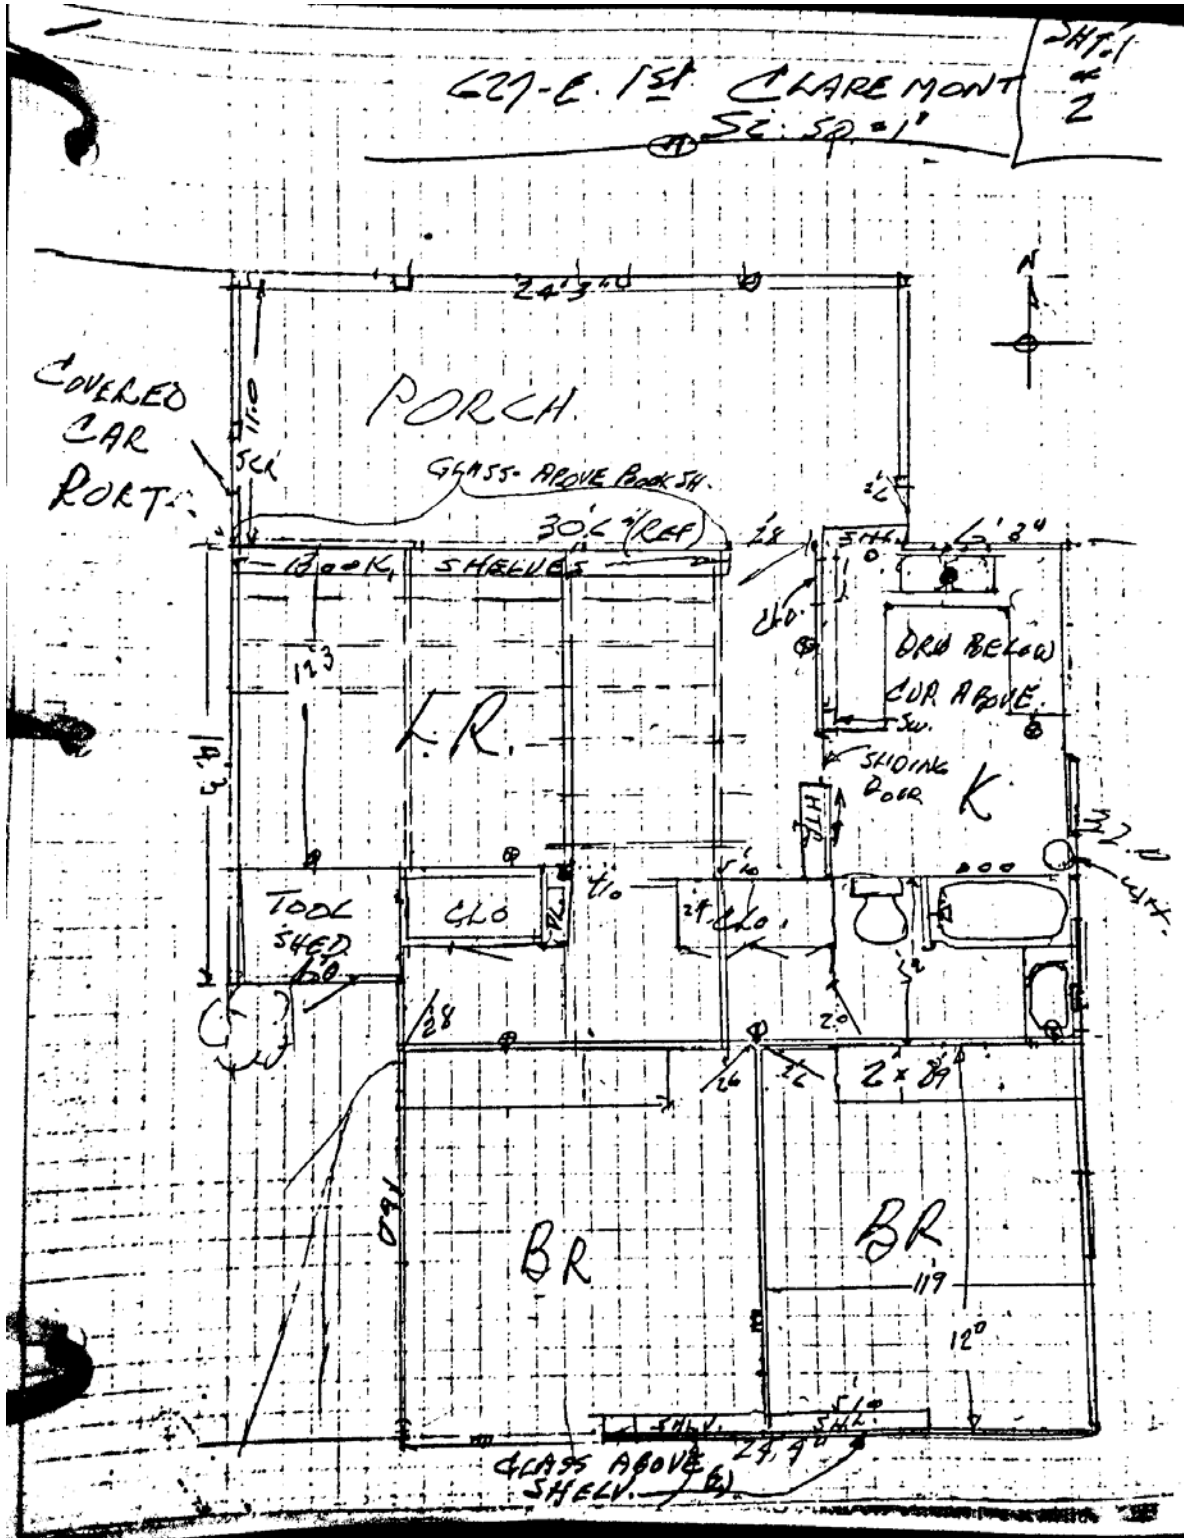 SHT. 1
of
2
627-E. 1st CLAREMONT
Sc. SQ = 1'
N
24'3"
COVERED
CAR
PORT
11.0
SCR
PORCH
GLASS ABOVE BOOK SH.
26
30'6" (REF)
28
SHL.
6'8"
BOOK SHELVES
CLO.
DRW BELOW
CUP. ABOVE
SW.
12 3
L.R.
SLIDING
DOOR
K
HTR
W.H.
TOOL
SHED
60
CLO
24 CLO.
5'10
28
20
26
26
2 x 89
160
BR
BR
119
12⁰
SHLV.
SHL.
24'9"
GLASS ABOVE
SHELV.